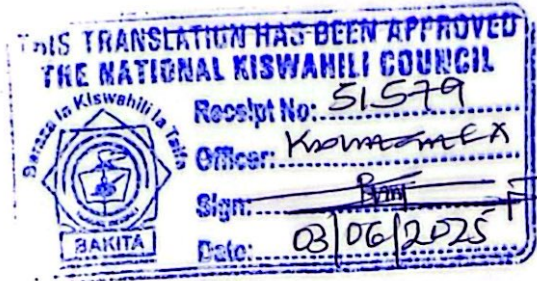 THIS TRANSLATION HAS BEEN APPROVED
THE NATIONAL KISWAHILI COUNCIL
Baraza la Kiswahili la Taifa
BAKITA
Receipt No: 51579
Officer:
Sign:
Date: 03/06/2025